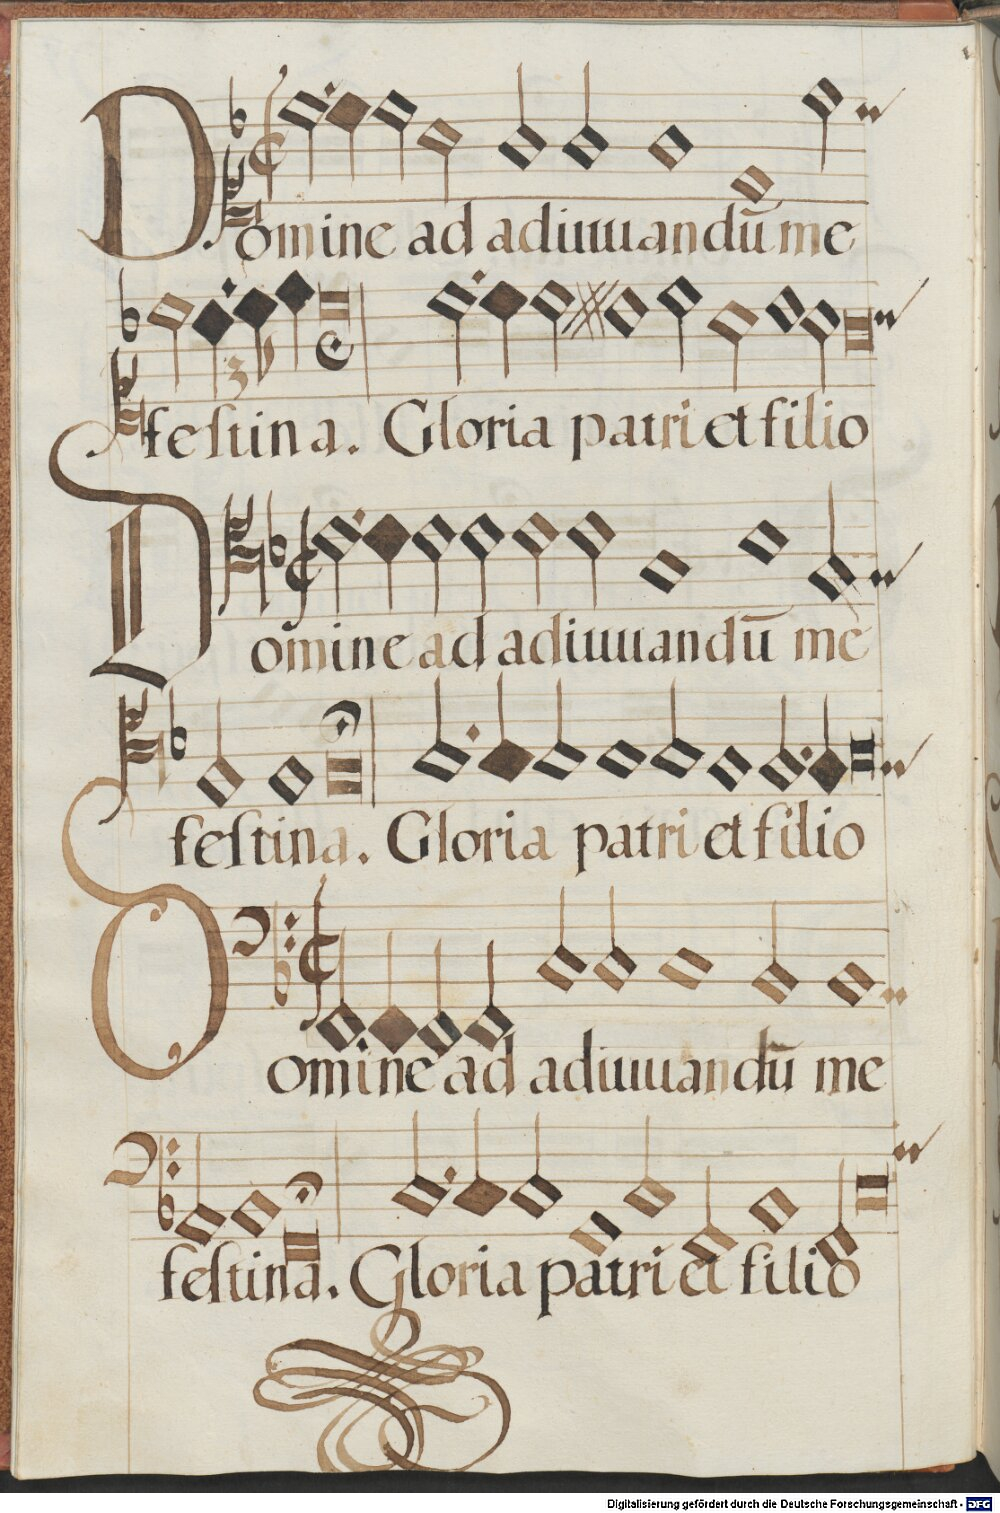 Domine ad adiuuuandū me
festina. Gloria patri et filio
Domine ad adiuuuandū me
festina. Gloria patri et filio
Domine ad adiuuuandū me
festina. Gloria patri et filio
Digitalisierung gefördert durch die Deutsche Forschungsgemeinschaft - DFG